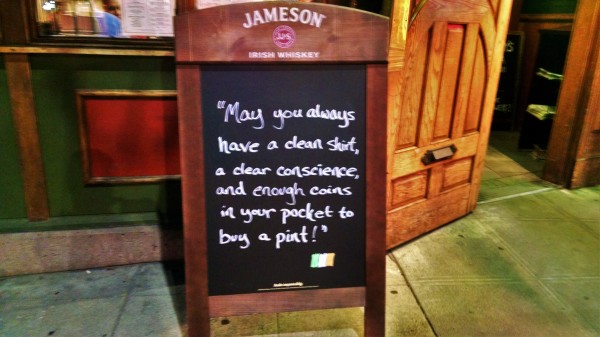 JAMESON
JJ&S
IRISH WHISKEY
"May you always
have a clean shirt,
a clear conscience,
and enough coins
in your pocket to
buy a pint!"